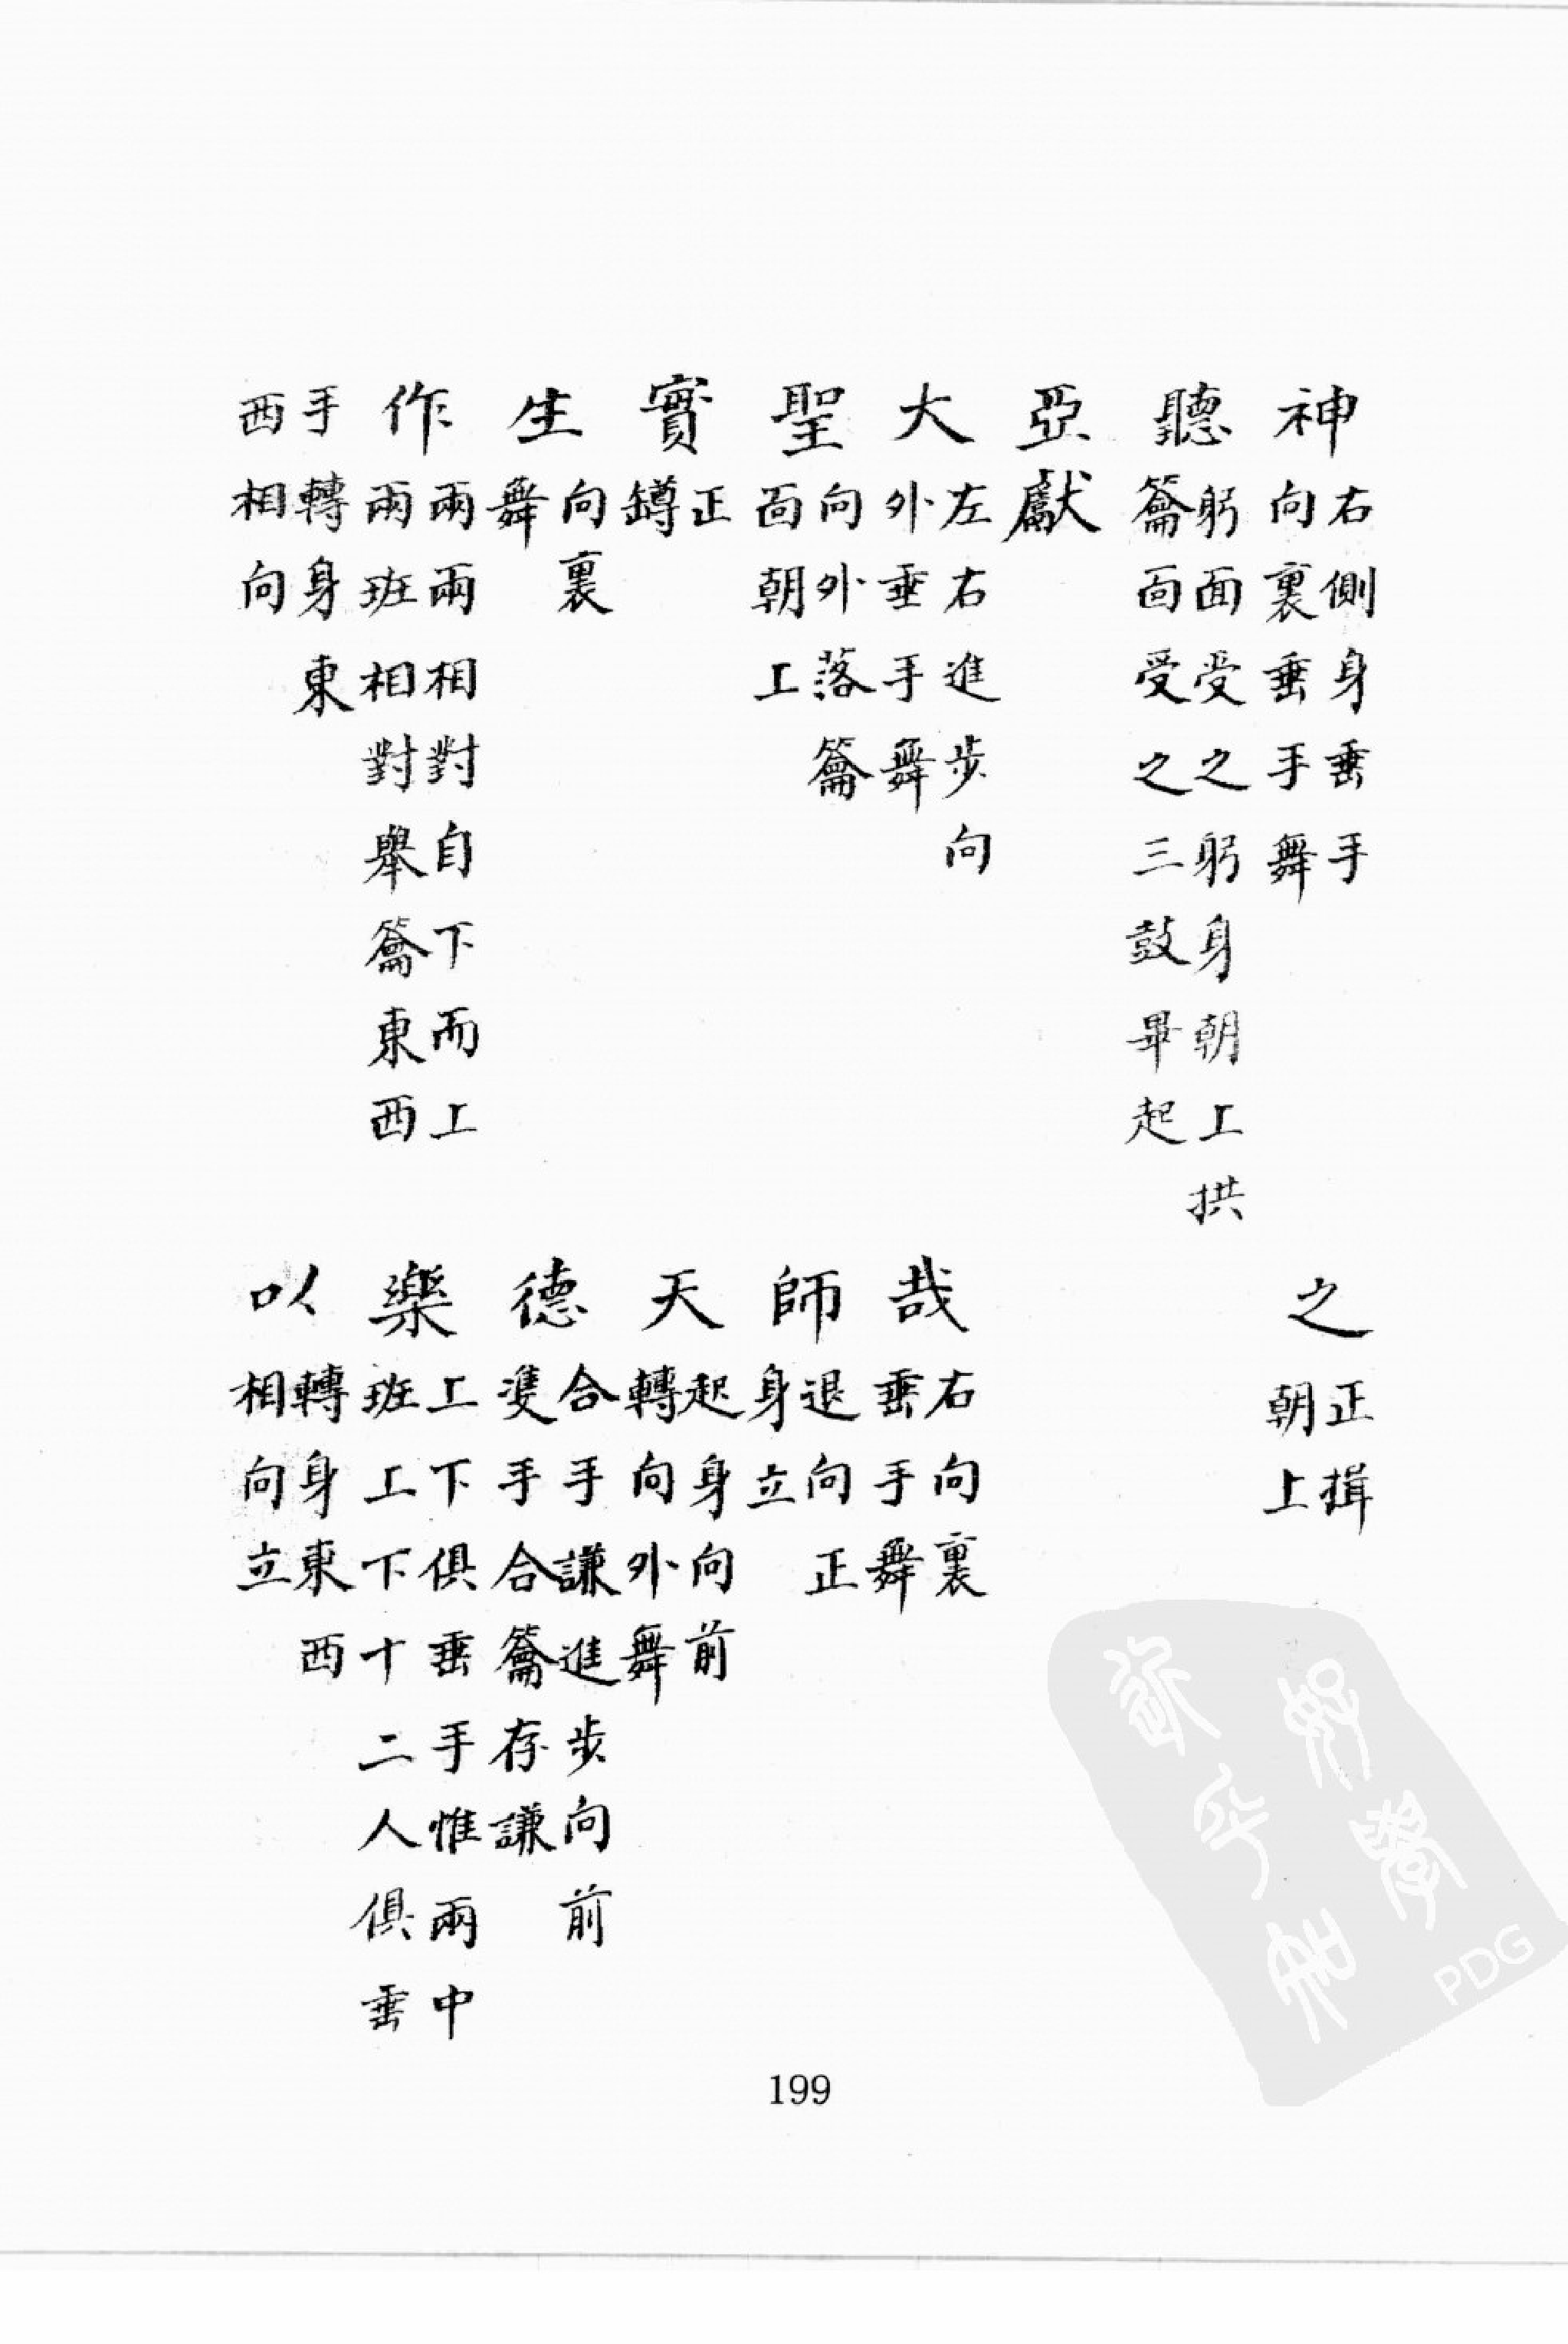 神 右側身垂手向裏垂手舞 之 正揖朝上
聽 躬面受之躬身朝上拱籥面受之三鼓畢起
亞獻
大 左右進步向外垂手舞 哉 右向裏垂手舞
聖 向外落籥面朝上 師 退向正身立
實 正鐏 天 起身向前轉向外舞
生 向裏舞 德 合手謙進步向前雙手合籥存謙
作 兩兩相對自下而上兩班相對舉籥東西 樂 上下俱垂手惟兩中班上下十二人俱垂
手轉身東西相向 以 轉身東西相向立
199
PDG